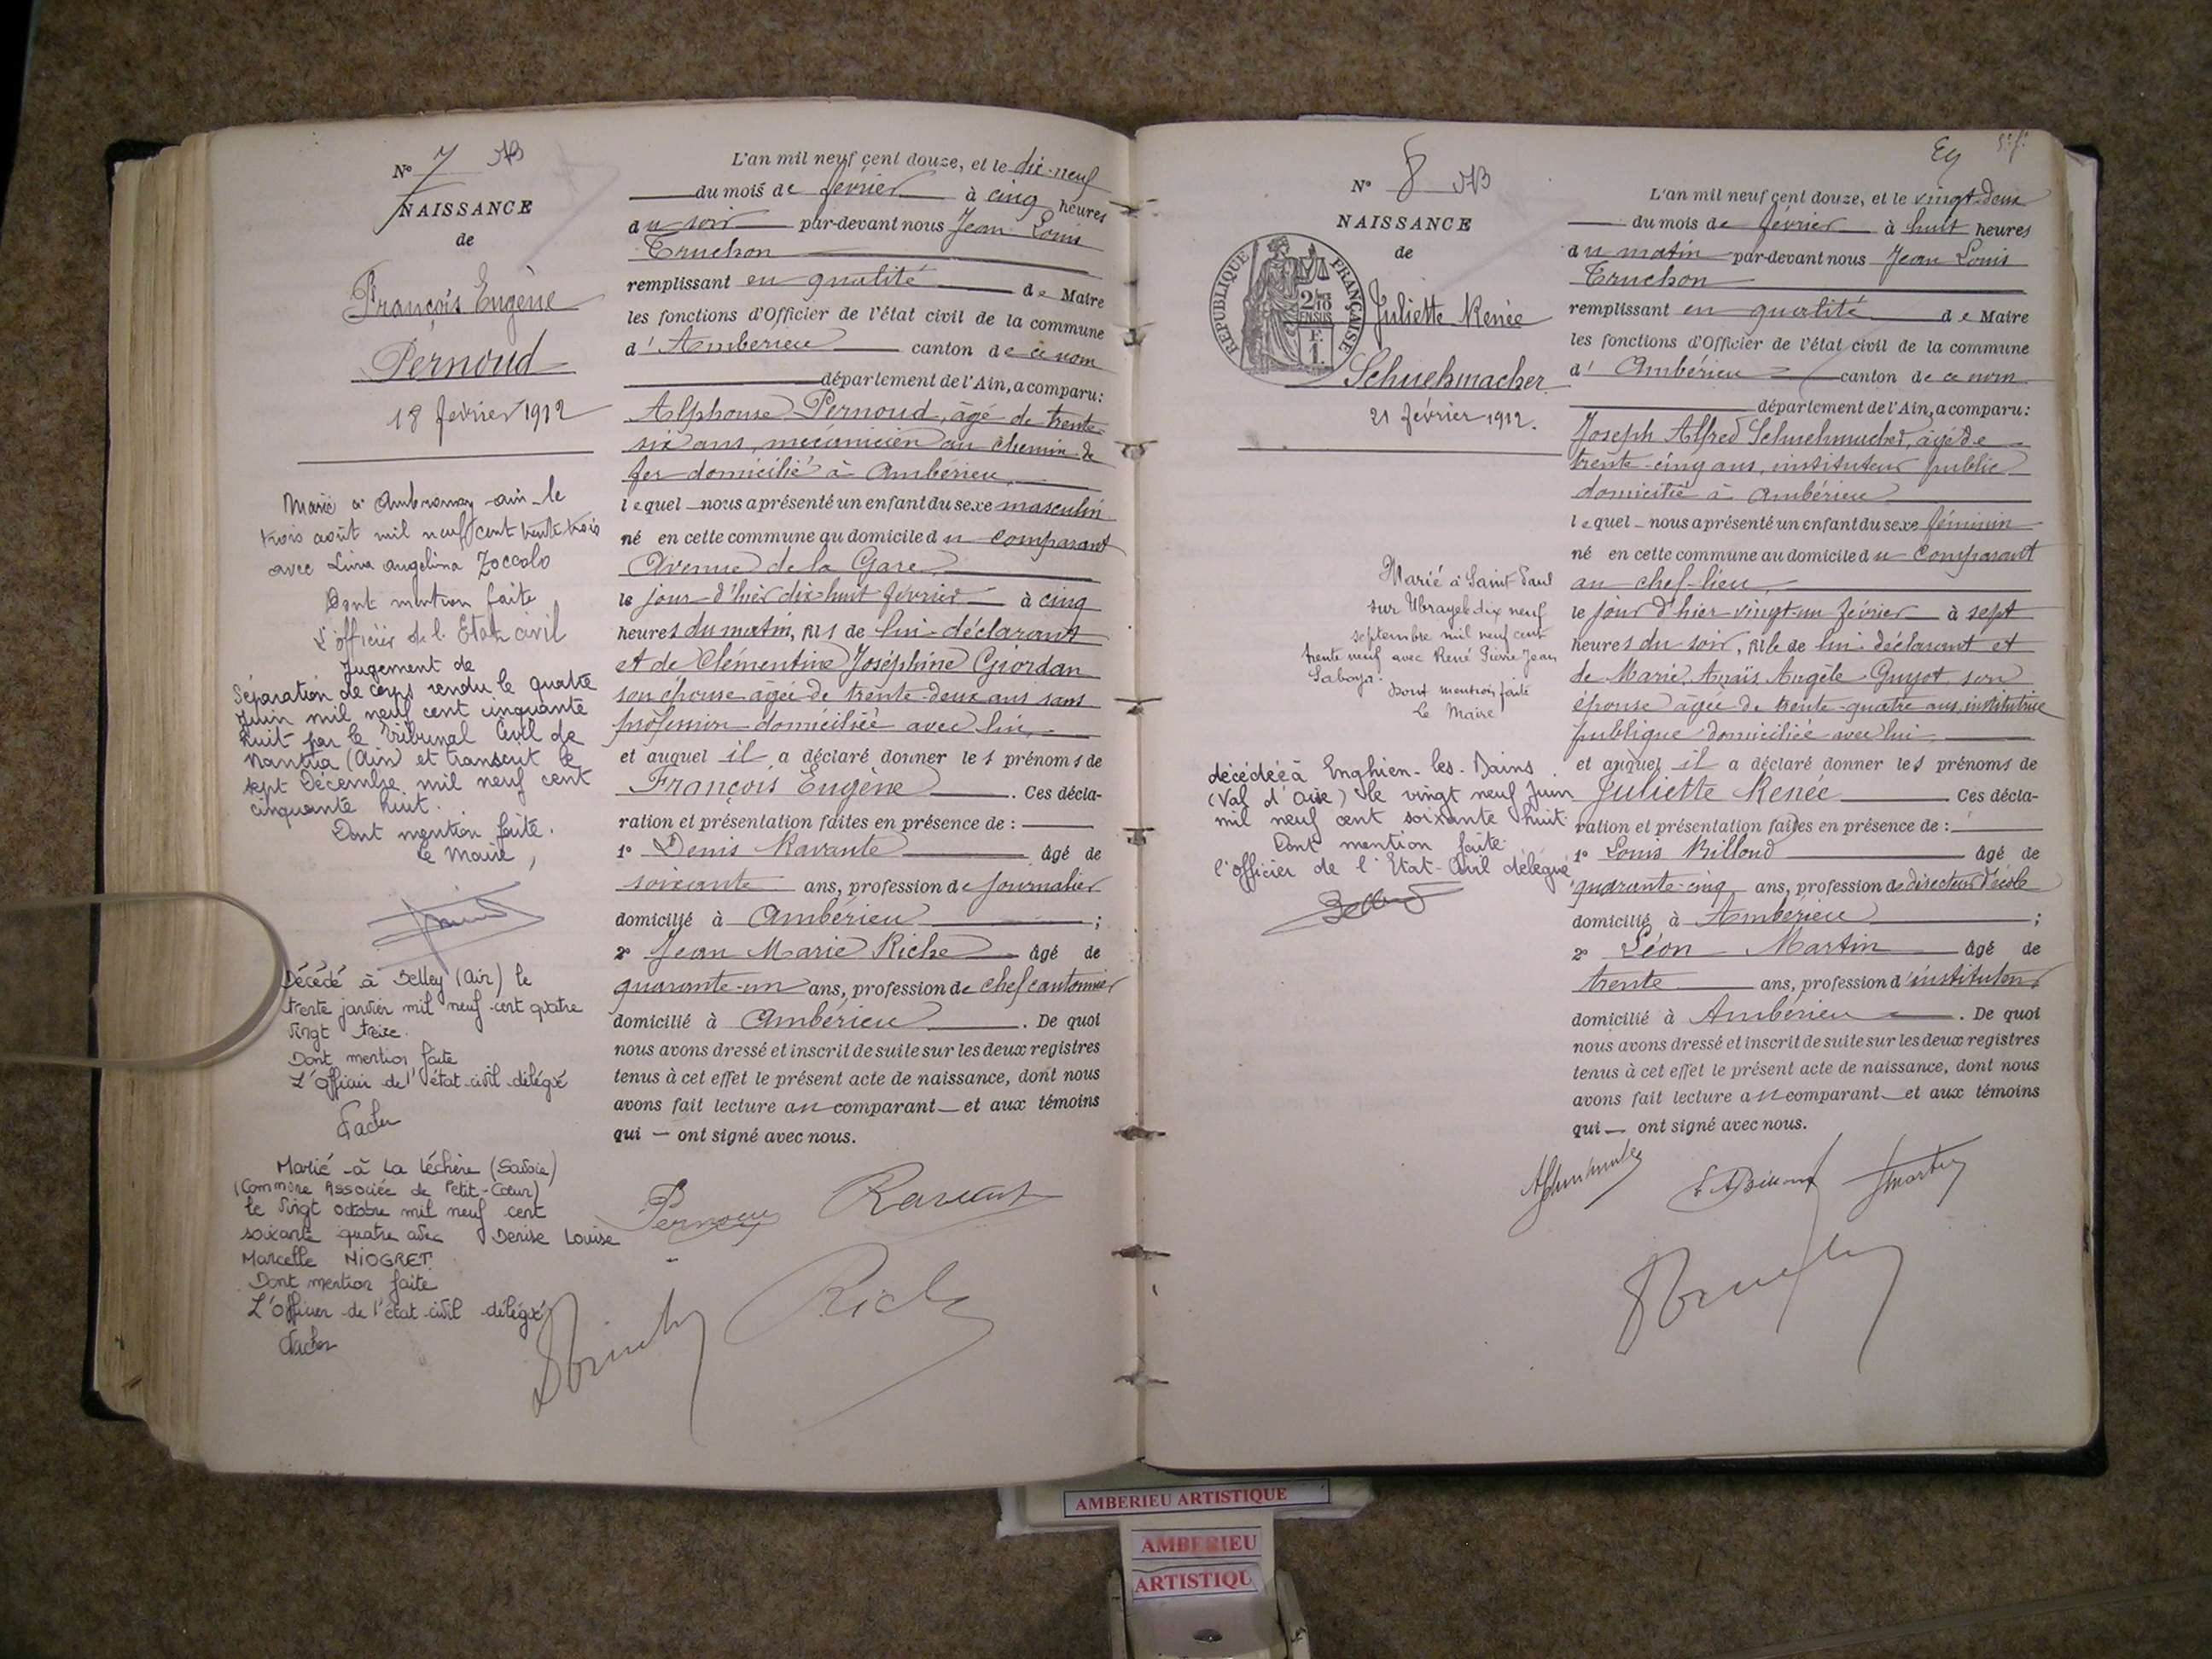 N° 7
NAISSANCE
de
François Eugène
Pernoud
18 février 1912
Marié à Ambronay ain le
trois août mil neuf cent trente trois
avec Lina Angelina Zoccolo
Dont mention faite
L'officier de l'Etat civil
Jugement de
Séparation de corps rendu le quatre
juin mil neuf cent cinquante
huit par le Tribunal Civil de
Nantua (Ain) et transcrit le
sept Décembre mil neuf cent
cinquante huit.
Dont mention faite.
Le Maire,
Décédé à Belley (Ain) le
trente janvier mil neuf cent quatre
vingt treize.
Dont mention faite
L'officier de l'état-civil délégué
Marié à La Léchère (Savoie)
(Commune Associée de Petit-Cœur)
le vingt octobre mil neuf cent
soixante quatre avec Denise Louise
Marcelle NIOGRET.
Dont mention faite
L'officier de l'état-civil délégué
L'an mil neuf cent douze, et le dix-neuf
du mois de février à cinq heures
du soir par-devant nous Jean Louis
Truchon
remplissant en qualité de Maire
les fonctions d'Officier de l'état civil de la commune
d'Ambérieu canton de ce nom
département de l'Ain, a comparu:
Alphonse Pernoud, âgé de trente-
six ans, mécanicien au chemin de
fer domicilié à Ambérieu,
lequel nous a présenté un enfant du sexe masculin
né en cette commune au domicile du comparant
Avenue de la Gare
le jour d'hier dix-huit février à cinq
heures du matin, fils de lui-déclarant
et de Clémentine Joséphine Giordan
son épouse âgée de trente-deux ans sans
profession domiciliée avec lui,
et auquel il a déclaré donner les prénoms de
François Eugène. Ces décla-
ration et présentation faites en présence de :
1° Denis Ravante âgé de
soixante ans, profession de journalier
domicilié à Ambérieu ;
2° Jean Marie Riche âgé de
quarante-un ans, profession de chef cantonnier
domicilié à Ambérieu. De quoi
nous avons dressé et inscrit de suite sur les deux registres
tenus à cet effet le présent acte de naissance, dont nous
avons fait lecture au comparant et aux témoins
qui — ont signé avec nous.
Pernoud
N° 8
NAISSANCE
de
RÉPUBLIQUE FRANÇAISE
Juliette Renée
Schuehmacher
21 février 1912.
Marié à Saint Paul
sur Ubaye le dix neuf
septembre mil neuf cent
trente neuf avec René Pierre Jean
Dont mention faite
Le Maire
décédée à Enghien-les-Bains
(Val d'Oise) le vingt neuf juin
mil neuf cent soixante huit.
Dont mention faite
l'officier de l'Etat-Civil délégué
L'an mil neuf cent douze, et le vingt-deux
du mois de février à huit heures
du matin par-devant nous Jean Louis
Truchon
remplissant en qualité de Maire
les fonctions d'Officier de l'état civil de la commune
d'Ambérieu canton de ce nom
département de l'Ain, a comparu:
Joseph Alfred Schuehmacher, âgé de
trente-cinq ans, instituteur public
domicilié à Ambérieu
lequel nous a présenté un enfant du sexe féminin
né en cette commune au domicile du comparant
au chef-lieu,
le jour d'hier vingt-un février à sept
heures du soir, fille de lui-déclarant et
de Marie Anaïs Angèle Guyot, son
épouse âgée de trente-quatre ans, institutrice
publique domiciliée avec lui,
et auquel il a déclaré donner les prénoms de
Juliette Renée Ces décla-
ration et présentation faites en présence de :
1° Louis Billoud âgé de
quarante-cinq ans, profession de directeur d'école
domicilié à Ambérieu ;
2° Léon Martin âgé de
trente ans, profession d'instituteur
domicilié à Ambérieu. De quoi
nous avons dressé et inscrit de suite sur les deux registres
tenus à cet effet le présent acte de naissance, dont nous
avons fait lecture au comparant et aux témoins
qui — ont signé avec nous.
AMBERIEU ARTISTIQUE
AMBERIEU
ARTISTIQU